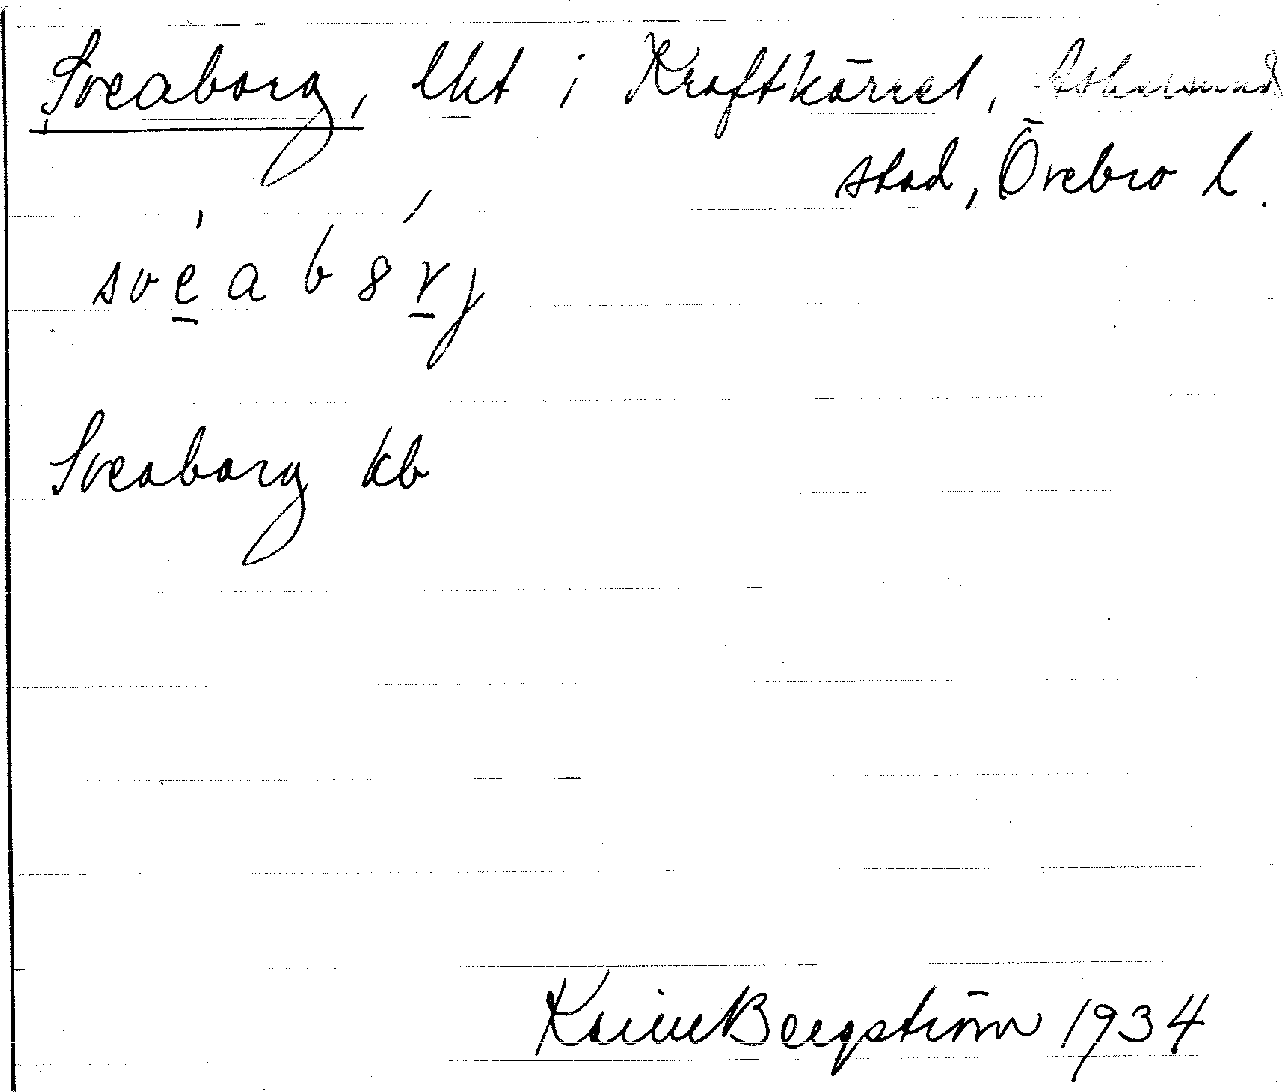 Sveaborg, lht i Kraftkärret, Askersund
stad, Örebro l.
svèab8́rj
Sveaborg kb
Karin Bergström 1934